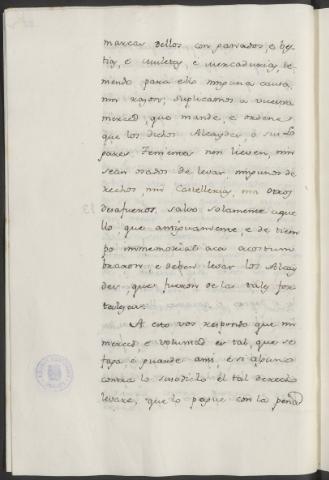 marcas dellos con parvados, e bes
tias, e muletas, e Mercadurias, te
niendo para ello ninguna causa,
nin razon; suplicamos a vuestra
merced, que mande, e ordene,
que los dichos Alcaydes, o sus Lo
gares Tenientes non lieven, nin
sean osados de levar ningunos de
rechos, nin Castellerias, nin otros
desafueros, salvo solamente aque
llo, que antiguamente, e de tiem
po immemorial aca acostum
braron, e deben levar los Alcay
des, que fueron de las tales for
talezas.
A esto vos respondo que mi
merced e voluntad es tal, que se
faga e guarde ansi, e si alguno
contra lo susodicho el tal derecho
levare, que lo pague con la pena